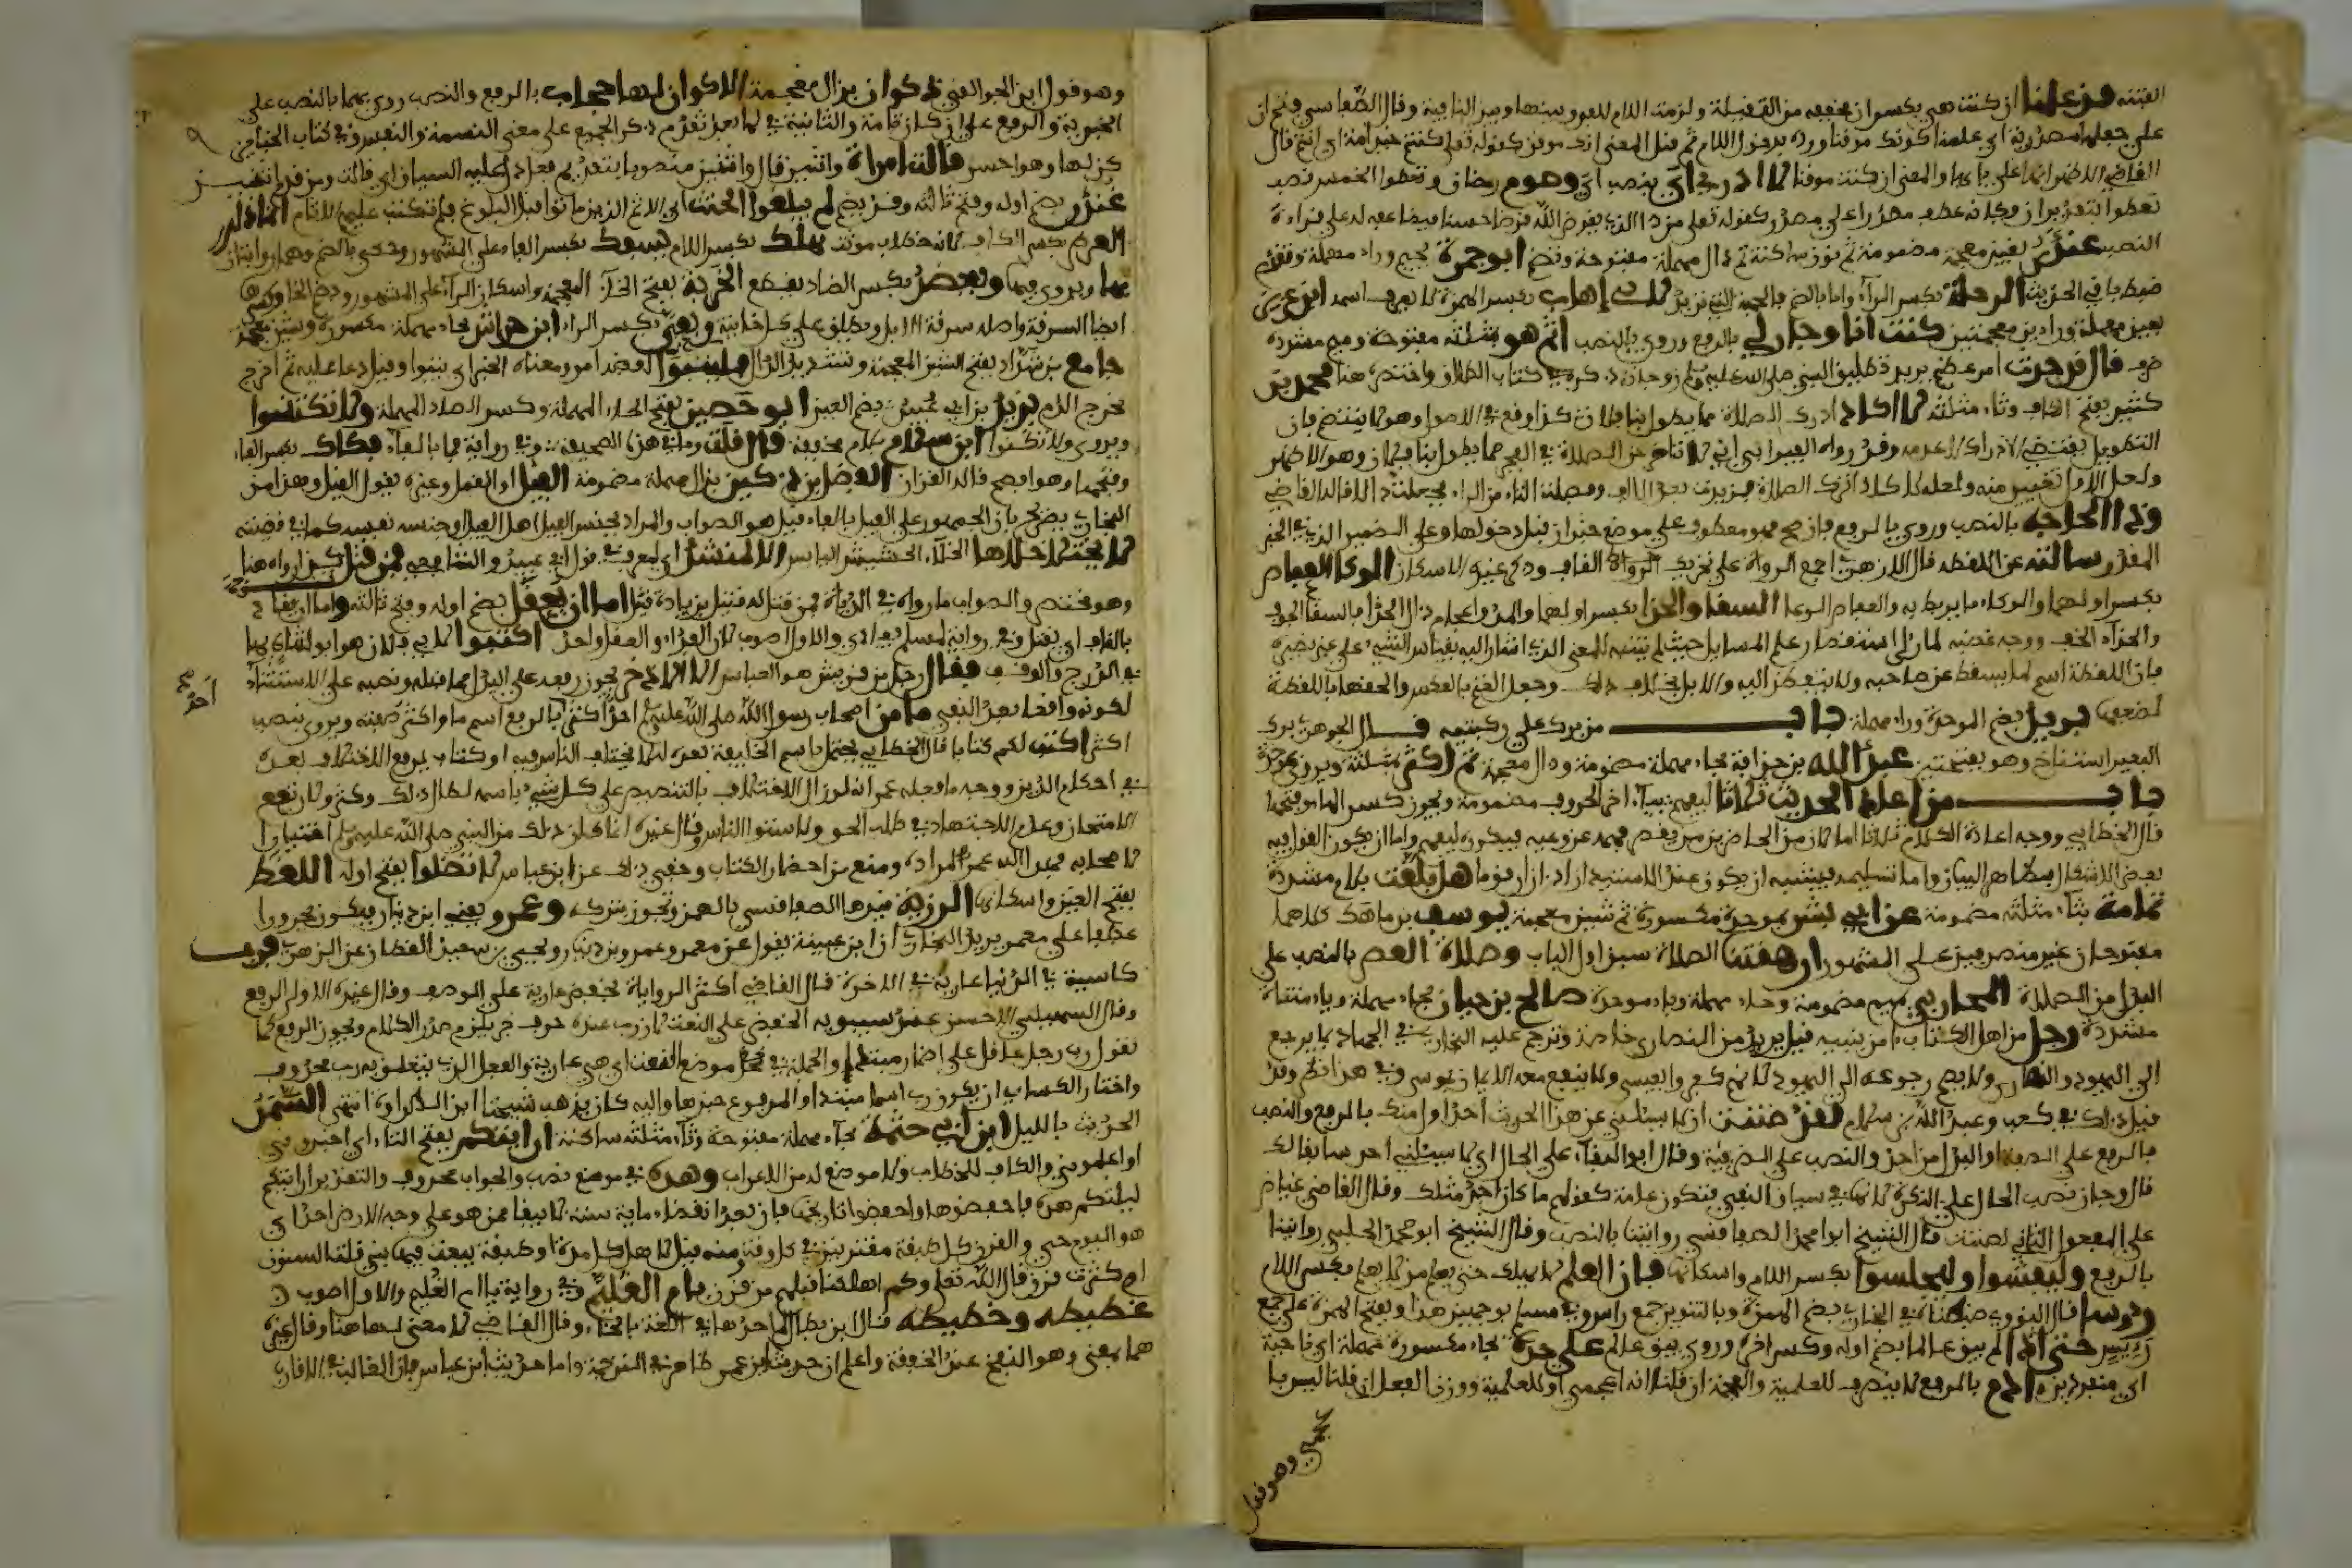 الفتنة قد علمنا ان كنت هي بكسر ان مخففة من الثقيلة ولزمت اللام للفرق بينها وبين النافية وقال الصفاقسي بفتح ان
على جعلها مصدرية اي علمنا كونك موقنا ورد بدخول اللام ثم قيل المعنى انك موقن كقوله تعلى كنتم خير امة اي انتم قال
القاضي الاظهر انها على بابها والمعنى ان كنت موقنا لا ادري اي بنصب اي وصوم رمضان وتعطوا الخمس نصب
النصب غندر بغين معجمة مضمومة ثم نون ساكنة ثم دال مهملة مفتوحة وتضم ابو جمرة بجيم وراء مهملة وتقدم
ضبطها في الحديث الرحلة بكسر الراء واما بالضم لابي إهاب بكسر الهمزة لا يعرف اسمه ابن عزيز
بعين مهملة وزاءين معجمتين كنت انا وجار لي بالرفع وروي بالنصب اثم هو بمثلثة مفتوحة وميم مشددة
ظرف قال قد حدث امر عظيم يريد تطليق النبي صلى الله عليه وسلم زوجاته ذكره في كتاب الطلاق واختصر هنا محمد بن
كثير بفتح الكاف وثاء مثلثة لا اكاد ادرك الصلاة مما يطول بنا فلان كذا وقع في الاصول وهو لا ينتظم فان
التطويل يقتضي الادراك لا عدمه وقد رواه الفريابي اني لا تأخر عن الصلاة في الفجر مما يطول بنا فلان وهو الاظهر
ولعل الاول تغيير منه ولعله لا كاد اترك الصلاة فزيدت بعد لا الف وفصلت التاء من الراء فجعلت دالا قاله القاضي
وذا الحاجة بالنصب وروي بالرفع فان صح فهو معطوف على موضع خبر ان قبل دخولها وعلى الضمير الذي في الخبر
المقدر سألته عن اللقطة قال الازهري اجمع الرواة على تحريك القاف وذكر غيره الاسكان الوكا العفاص
بكسر اولهما والوكاء ما يربط به والعفاص الوعا السقا والحذا بكسر اولهما والمد واعجام ذال الحذا بالسقا الجوف
والحذاء الخف ووجه غضبه لما راى استقصار علم السايل حيث لم يتنبه للمعنى الذي اشار اليه بقياس الشيء على غير نظيره
فان اللقطة اسم لما يسقط عن صاحبه ولا يتفطن اليه والابل بخلاف ذلك وجعل الغنم بالعكس والحقها باللقطة
لضعفها بريد بضم الموحدة وراء مهملة باب من برك على ركبتيه قال الجوهري برك
البعير استناخ وهو بفتحتين عبد الله بن حذافة بحاء مهملة مضمومة وذال معجمة ثم اكثر بمثلثة ويروى بموحدة
باب من اعاد الحديث ثلاثا ليفهم بياء اخر الحروف مضمومة ويجوز كسر الهاء وفتحها
قال الخطابي ووجه اعادة الكلام ثلاثا اما لان من الحاضرين من يقصر فهمه عن وعيه فيكرره ليفهم واما ان يكون القول فيه
بعض الاشكال فيظاهر البيان واما تسليمه فيشبه ان يكون عند الاستيذان اذا زار قوما هل بلغت بلام مشددة
ثمامة بثاء مثلثة مضمومة عن ابي بشر بموحدة مكسورة ثم شين معجمة يوسف بن ماهك كلاهما
مفتوحان غير منصرفين على المشهور ارهقتنا الصلاة سبق اول الباب وصلاة العصر بالنصب على
البدل من الصلاة المحاربي بميم مضمومة وحاء مهملة وباء موحدة صالح بن حيان بحاء مهملة وياء مثناة
مشددة رجل من اهل الكتاب امن بنبيه قيل يريد من النصارى خاصة وترجم عليه البخاري في الجهاد بما يرجع
الى اليهود والنصارى ولا يصح رجوعه الى اليهود لانهم كفروا بعيسى ولا ينفع معه الايمان بموسى وفي هذا نظر وقد
قيل ذلك في كعب وعبد الله بن سلام لقد ظننت ان لا يسئلني عن هذا الحديث احد اول منك بالرفع والنصب
فالرفع على الصفة او البدل من احد والنصب على الظرفية وقال ابو البقاء على الحال اي لا يسئلني احد سابقا لك
قال وجاز نصب الحال على النكرة لانها في سياق النفي فتكون عامة كقولهم ما كان احد مثلك وقال القاضي عياض
على المفعول الثاني لظننت قال الشيخ ابو محمد الصفاقسي روايتنا بالنصب وقال الشيخ ابو محمد الحلبي روايتنا
بالرفع وليفشوا وليجلسوا بكسر اللام واسكانها فان العلم لا يهلك حتى يعلم من لا يعلم بكسر اللام
رءوسا قال النووي ضبطناه في البخاري بضم الهمزة وبالتنوين جمع راس وفي مسلم بوجهين هذا وبفتح الهمزة على جمع
رءيس حتى اذا لم يبق عالما بضم اوله وكسر اخره وروي يبق عالم على حدة بحاء مكسورة مهملة اي ناحية
اي منفردين ادم بالرفع لا ينصرف للعلمية والعجمة ان قلنا انه اعجمي او للعلمية ووزن الفعل ان قلنا ليس بـ
عجمي وهو فعل
وهو قول ابن الجواليقي ذكوان بذال معجمة الا كان لها حجاب بالرفع والنصب روي بهما بالنصب على
الخبرية والرفع على ان كان تامة
كن لها وهو احسن قالت امراة واثنين قال واثنين منصوب بتقدير فعل دل عليه السياق اي قالت ومن قدم اثنين
غندر بضم اوله وفتح ثالثه وقد يضم لم يبلغوا الحنث اي الاثم الذين ماتوا قبل البلوغ فلم تكتب عليهم الاثام انما ذلك
العرض بكسر الكاف لانه خطاب مونث يهلك بكسر اللام يسفك بكسر الفاء على المشهور وحكي بالضم وهما روايتان
بها ويروى فيها ويعضد بكسر الضاد يقطع الخربة بفتح الخاء المعجمة واسكان الراء على المشهور
ايضا السرقة واصله سرقة الابل ويطلق على كل خيانة ربعي بكسر الراء ابن حراش بحاء مهملة مكسورة وشين معجمة
جامع بن شداد بفتح الشين المعجمة وتشديد الدال فليتبوا لفظه امر ومعناه الخبر اي يتبوا وقيل دعا عليه ثم اخرج
مخرج الذم يزيد بن ابي عبيد بضم العين ابو حصين بفتح الحاء المهملة وكسر الصاد المهملة ولا تكتنوا
ويروى ولا تكنوا ابن سلام بلام مخففة قال قلت وما في هذه الصحيفة وفي رواية فما بالفاء فكاك بكسر الفاء
وفتحها وهو افصح قاله القزاز الفضل بن دكين بدال مهملة مضمومة الفيل او القتل وغيره يقول الفيل وهذا من
البخاري يصرح بان الجمهور على الفيل بالفاء قيل هو الصواب والمراد بحبس الفيل اهل الفيل او حبسه نفسه كما في قصته
لا يختلا خلاها الخلا الحشيش اليابس الا لمنشد اي لمعرف في قول ابي عبيد والشافعي فمن قتل كذا رواه هنا
وهو مختصر والصواب ما رواه في الديات فمن قتل له قتيل بزيادة قتيل اما ان يعقل بضم اوله وفتح ثالثه واما ان يقاد
بالقاف اي يقتل وفي رواية لمسلم يفادى والاول اصوب لان الفداء والعقل واحد اكتبوا لابي فلان هو ابو شاه بهاء
في الدرج والوقف فقال رجل من قريش هو العباس الا الاذخر يجوز رفعه على البدل مما قبله ونصبه على الاستثناء
لكونه واقعا بعد النفي ما من اصحاب رسول الله صلى الله عليه وسلم احد اكثر بالرفع اسم ما واكثر صفته ويروى بنصب
اكثر اكتب لكم كتابا قال الخطابي يحتمل باسم الخليفة بعده لئلا يختلف الناس فيه او كتاب يرفع الاختلاف بعده
في احكام الدين ووجه ما فعله عمر انه لو زال الاختلاف بالتنصيص على كل شيء باسمه لطال ذلك وكثر ولارتفع
الامتحان وعدم الاجتهاد في طلب الحق ولاستوا الناس وقال غيره انما كان ذلك من النبي صلى الله عليه وسلم اختبارا
لاصحابه فهدا الله عمر لمراده ومنع من احضار الكتاب وخفي ذلك عن ابن عباس لا تضلوا بفتح اوله اللغط
بفتح الغين واسكانها الرزية قيدها الصفاقسي بالهمز ويجوز تركه وعمرو يعني ابن دينار فيكون مجرورا
عطفا على معمر يريد البخاري ان ابن عيينة يقول عن معمر وعمرو بن دينار ويحيى بن سعيد القطان عن الزهري فرب
كاسية في الدنيا عارية في الاخرة قال القاضي اكثر الروايات بخفض عارية على الوصف وقال غيره الاولى الرفع
وقال السهيلي الاحسن عند سيبويه الخفض على النعت لان رب عنده حرف جر يلزم صدر الكلام ويجوز الرفع كما
تقول رب رجل عاقل على اضمار مبتدا والجملة في موضع النعت اي هي عارية والفعل الذي تتعلق به رب محذوف
واختار الكساي ان يكون رب اسما مبتدا والمرفوع خبرها واليه كان يذهب شيخنا ابن الطراوة انتهى السمر
الحديث بالليل ابن ابي حثمة بحاء مهملة مفتوحة وثاء مثلثة ساكنة ارايتكم بفتح التاء اي اخبروني
او اعلموني والكاف للخطاب ولا موضع له من الاعراب وهذه في موضع نصب والجواب محذوف والتقدير ارايتكم
ليلتكم هذه فاحفظوها واحفظوا تاريخها فان بعد انقضاء ماية سنة لا يبقا ممن هو على وجه الارض احد اي
هو اليوم حي والقرن كل طبقة مقترنين في وقت ومنه قيل لاهل كل مدة او طبقة بعث فيها نبي قلت السنون
او كثرت قرن قال الله تعلى وكم اهلكنا قبلهم من قرن نام الغليم وفي رواية يا ام الغليم والاول اصوب
غطيطه وخطيطه قال ابن بطال لم اجدها في اللغة بالخاء وقال القاضي لا معنى لها هنا وقال غيره
هما بمعنى وهو النفخ عند الخفقة واعلم ان حديث ابن عمر ظاهر في الترجمة واما حديث ابن عباس فلان الغالب في الاقارب